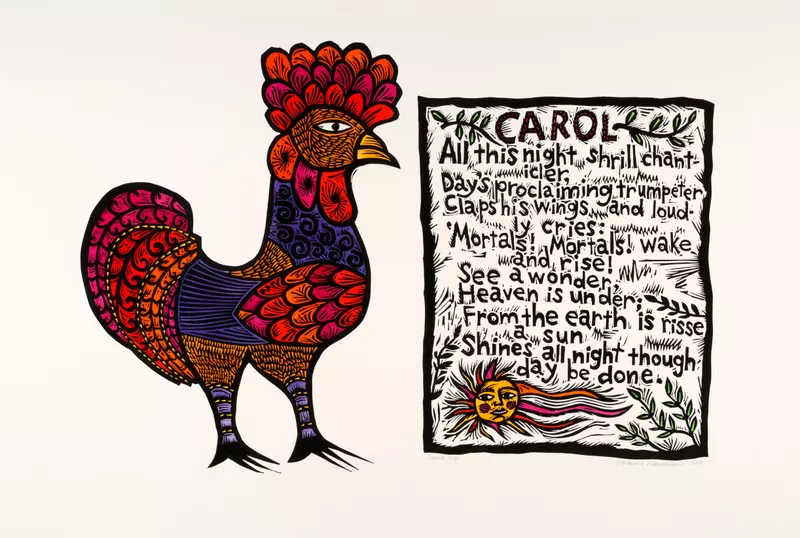 CAROL
All this night shrill chant-
icler,
Days proclaiming trumpeter,
Claps his wings and loud-
ly cries:
"Mortals! Mortals! wake
and rise!
See a wonder,
Heaven is under;
From the earth is risse
a sun
Shines all night though
day be done.